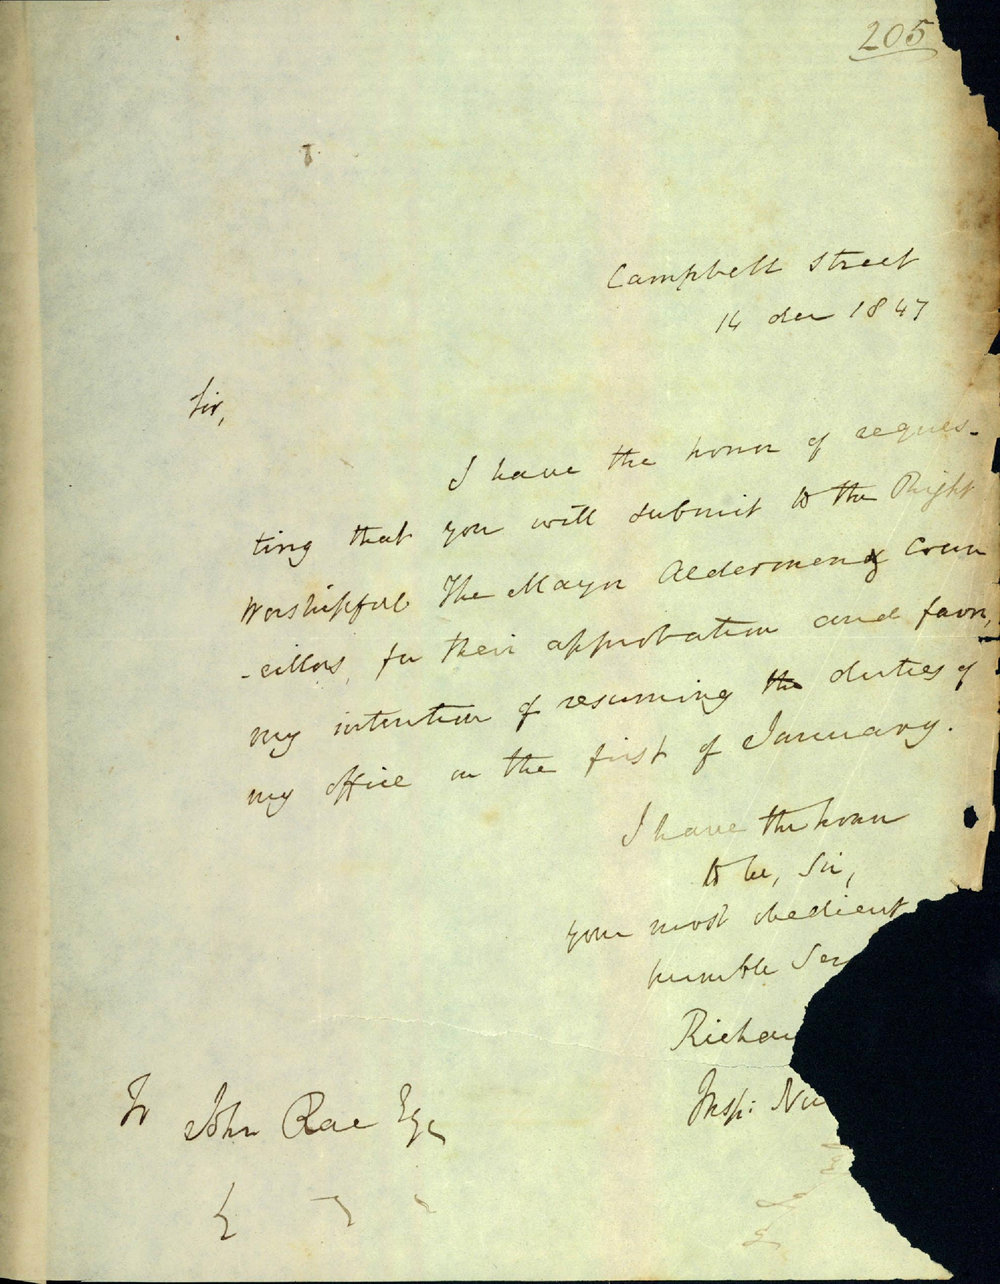 205
Campbell Street
14 Decr 1847
Sir,
I have the honor of reques-
ting that you will submit to the Right
Worshipful The Mayor Aldermen & Coun
-cillors, for their approbation and favor,
my intention of resuming the duties of
my office on the first of January.
I have the honor
to be, Sir,
your most obedient
humble Ser
Richar
Insp: Nu
To John Rae Esq